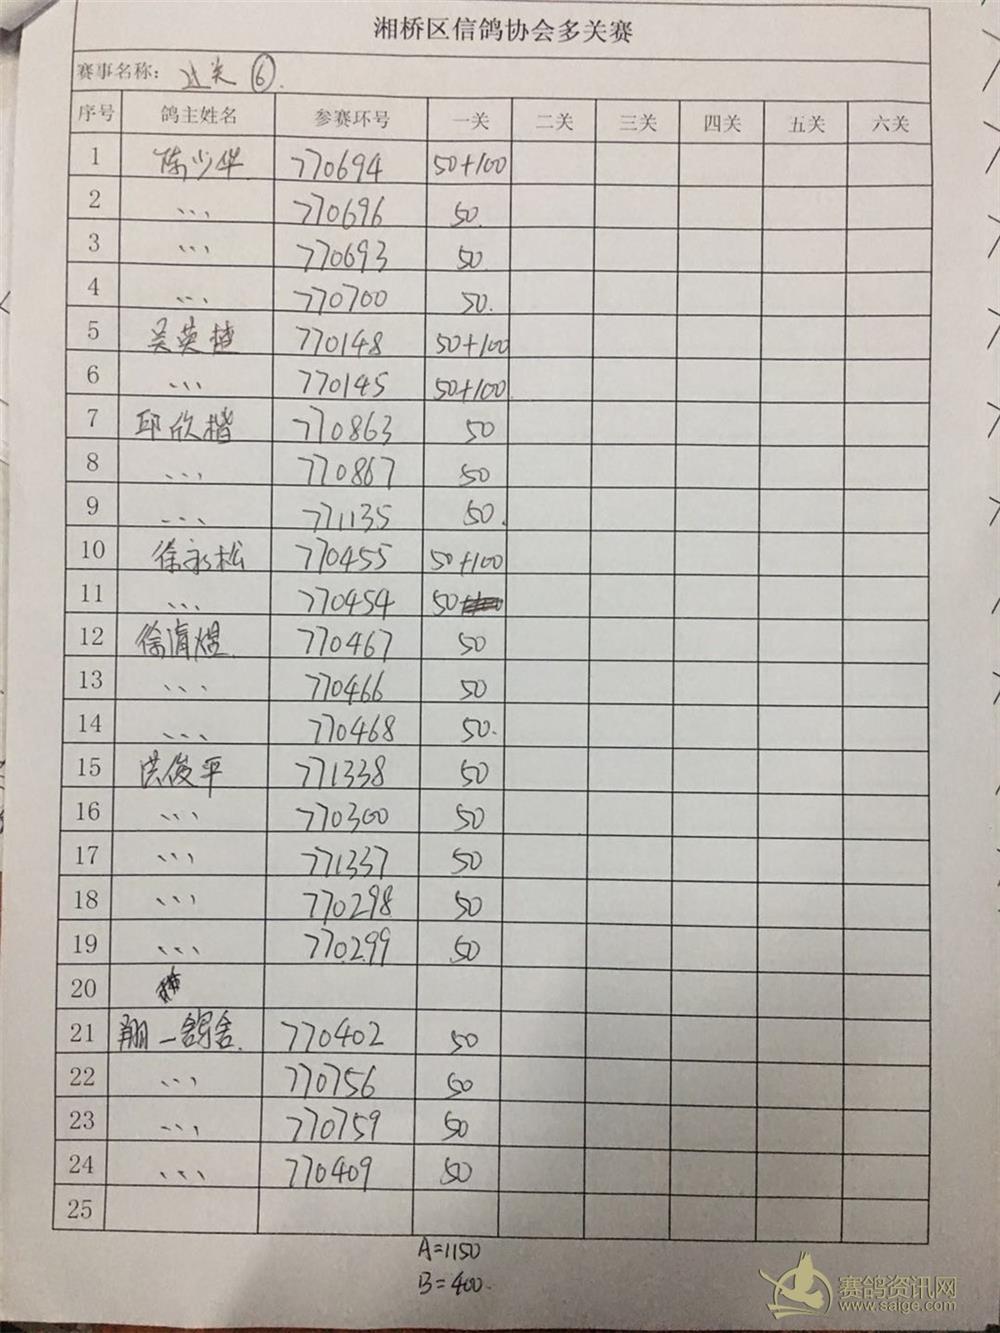 湘桥区信鸽协会多关赛
赛事名称: 过关⑥.
序号 鸽主姓名 参赛环号 一关 二关 三关 四关 五关 六关
1 陈少华 770694 50+100
2 、、、 770696 50.
3 、、、 770693 50
4 、、、 770700 50.
5 吴英楂 770148 50+100
6 、、、 770145 50+100
7 邱欣楷 770863 50
8 、、、 770867 50
9 、、、 771135 50.
10 徐永松 770455 50+100
11 、、、 770454 50
12 徐清煜 770467 50
13 、、、 770466 50
14 、、、 770468 50.
15 洪俊平 771338 50
16 、、、 770300 50
17 、、、 771337 50
18 、、、 770298 50
19 、、、 770299 50
20
21 翔一鸽舍. 770402 50
22 、、、 770756 50
23 、、、 770759 50
24 、、、 770409 50
25
A=1150
B=400.
赛鸽资讯网
www.saige.com